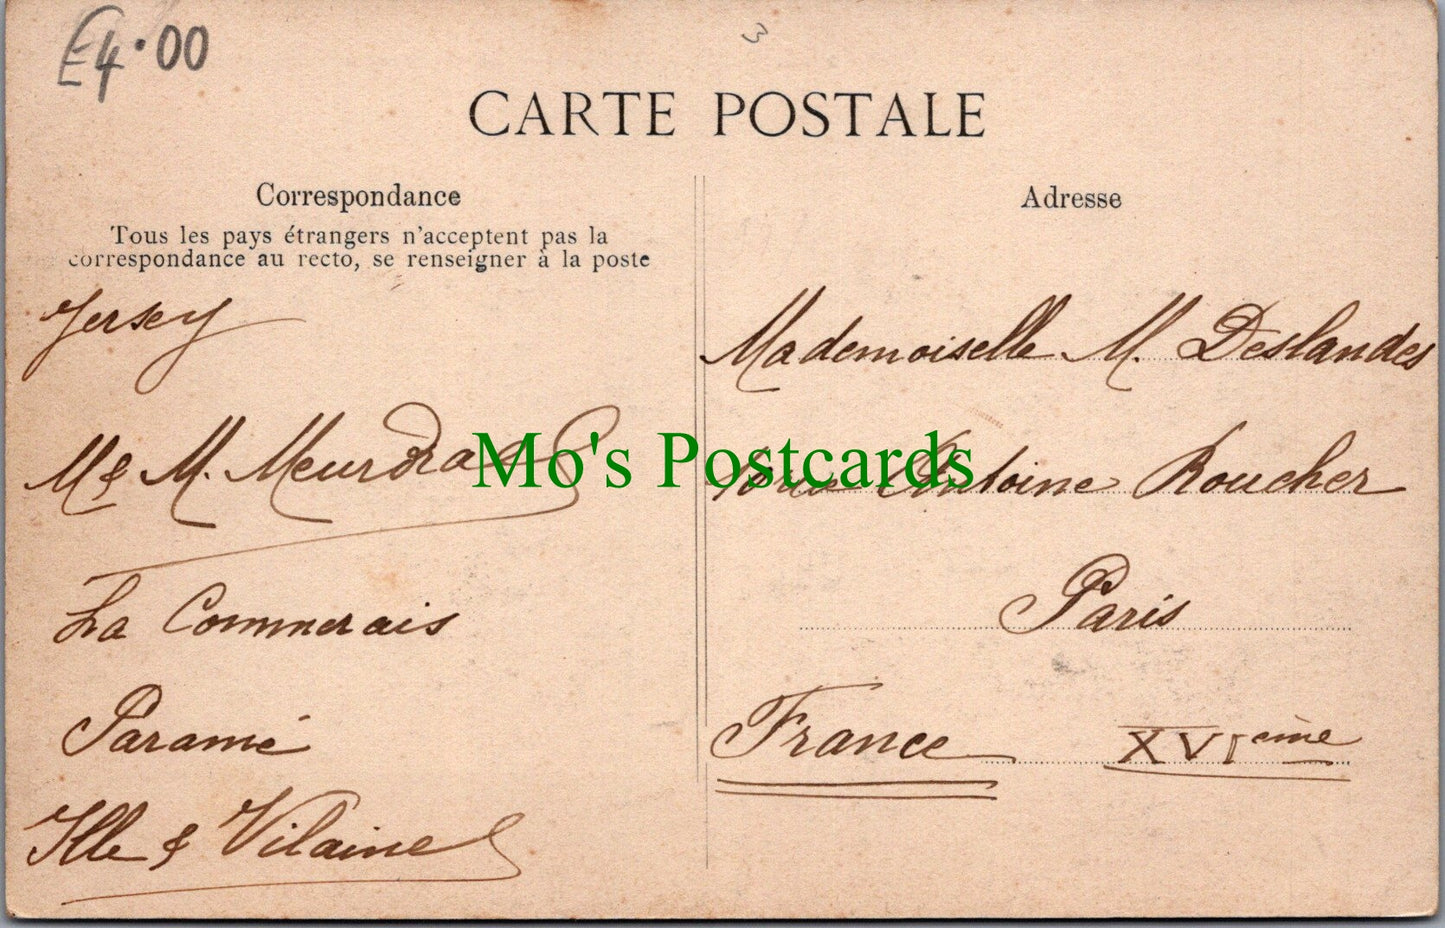 £4.00
3
CARTE POSTALE
Correspondance
Tous les pays étrangers n'acceptent pas la
correspondance au recto, se renseigner à la poste
Jersey
M & M. Meurdra
La Commerais
Paramé
Ille & Vilaine
Adresse
Mademoiselle M. Deslandes
rue Antoine Roucher
Paris
France XVIème
Mo's Postcards